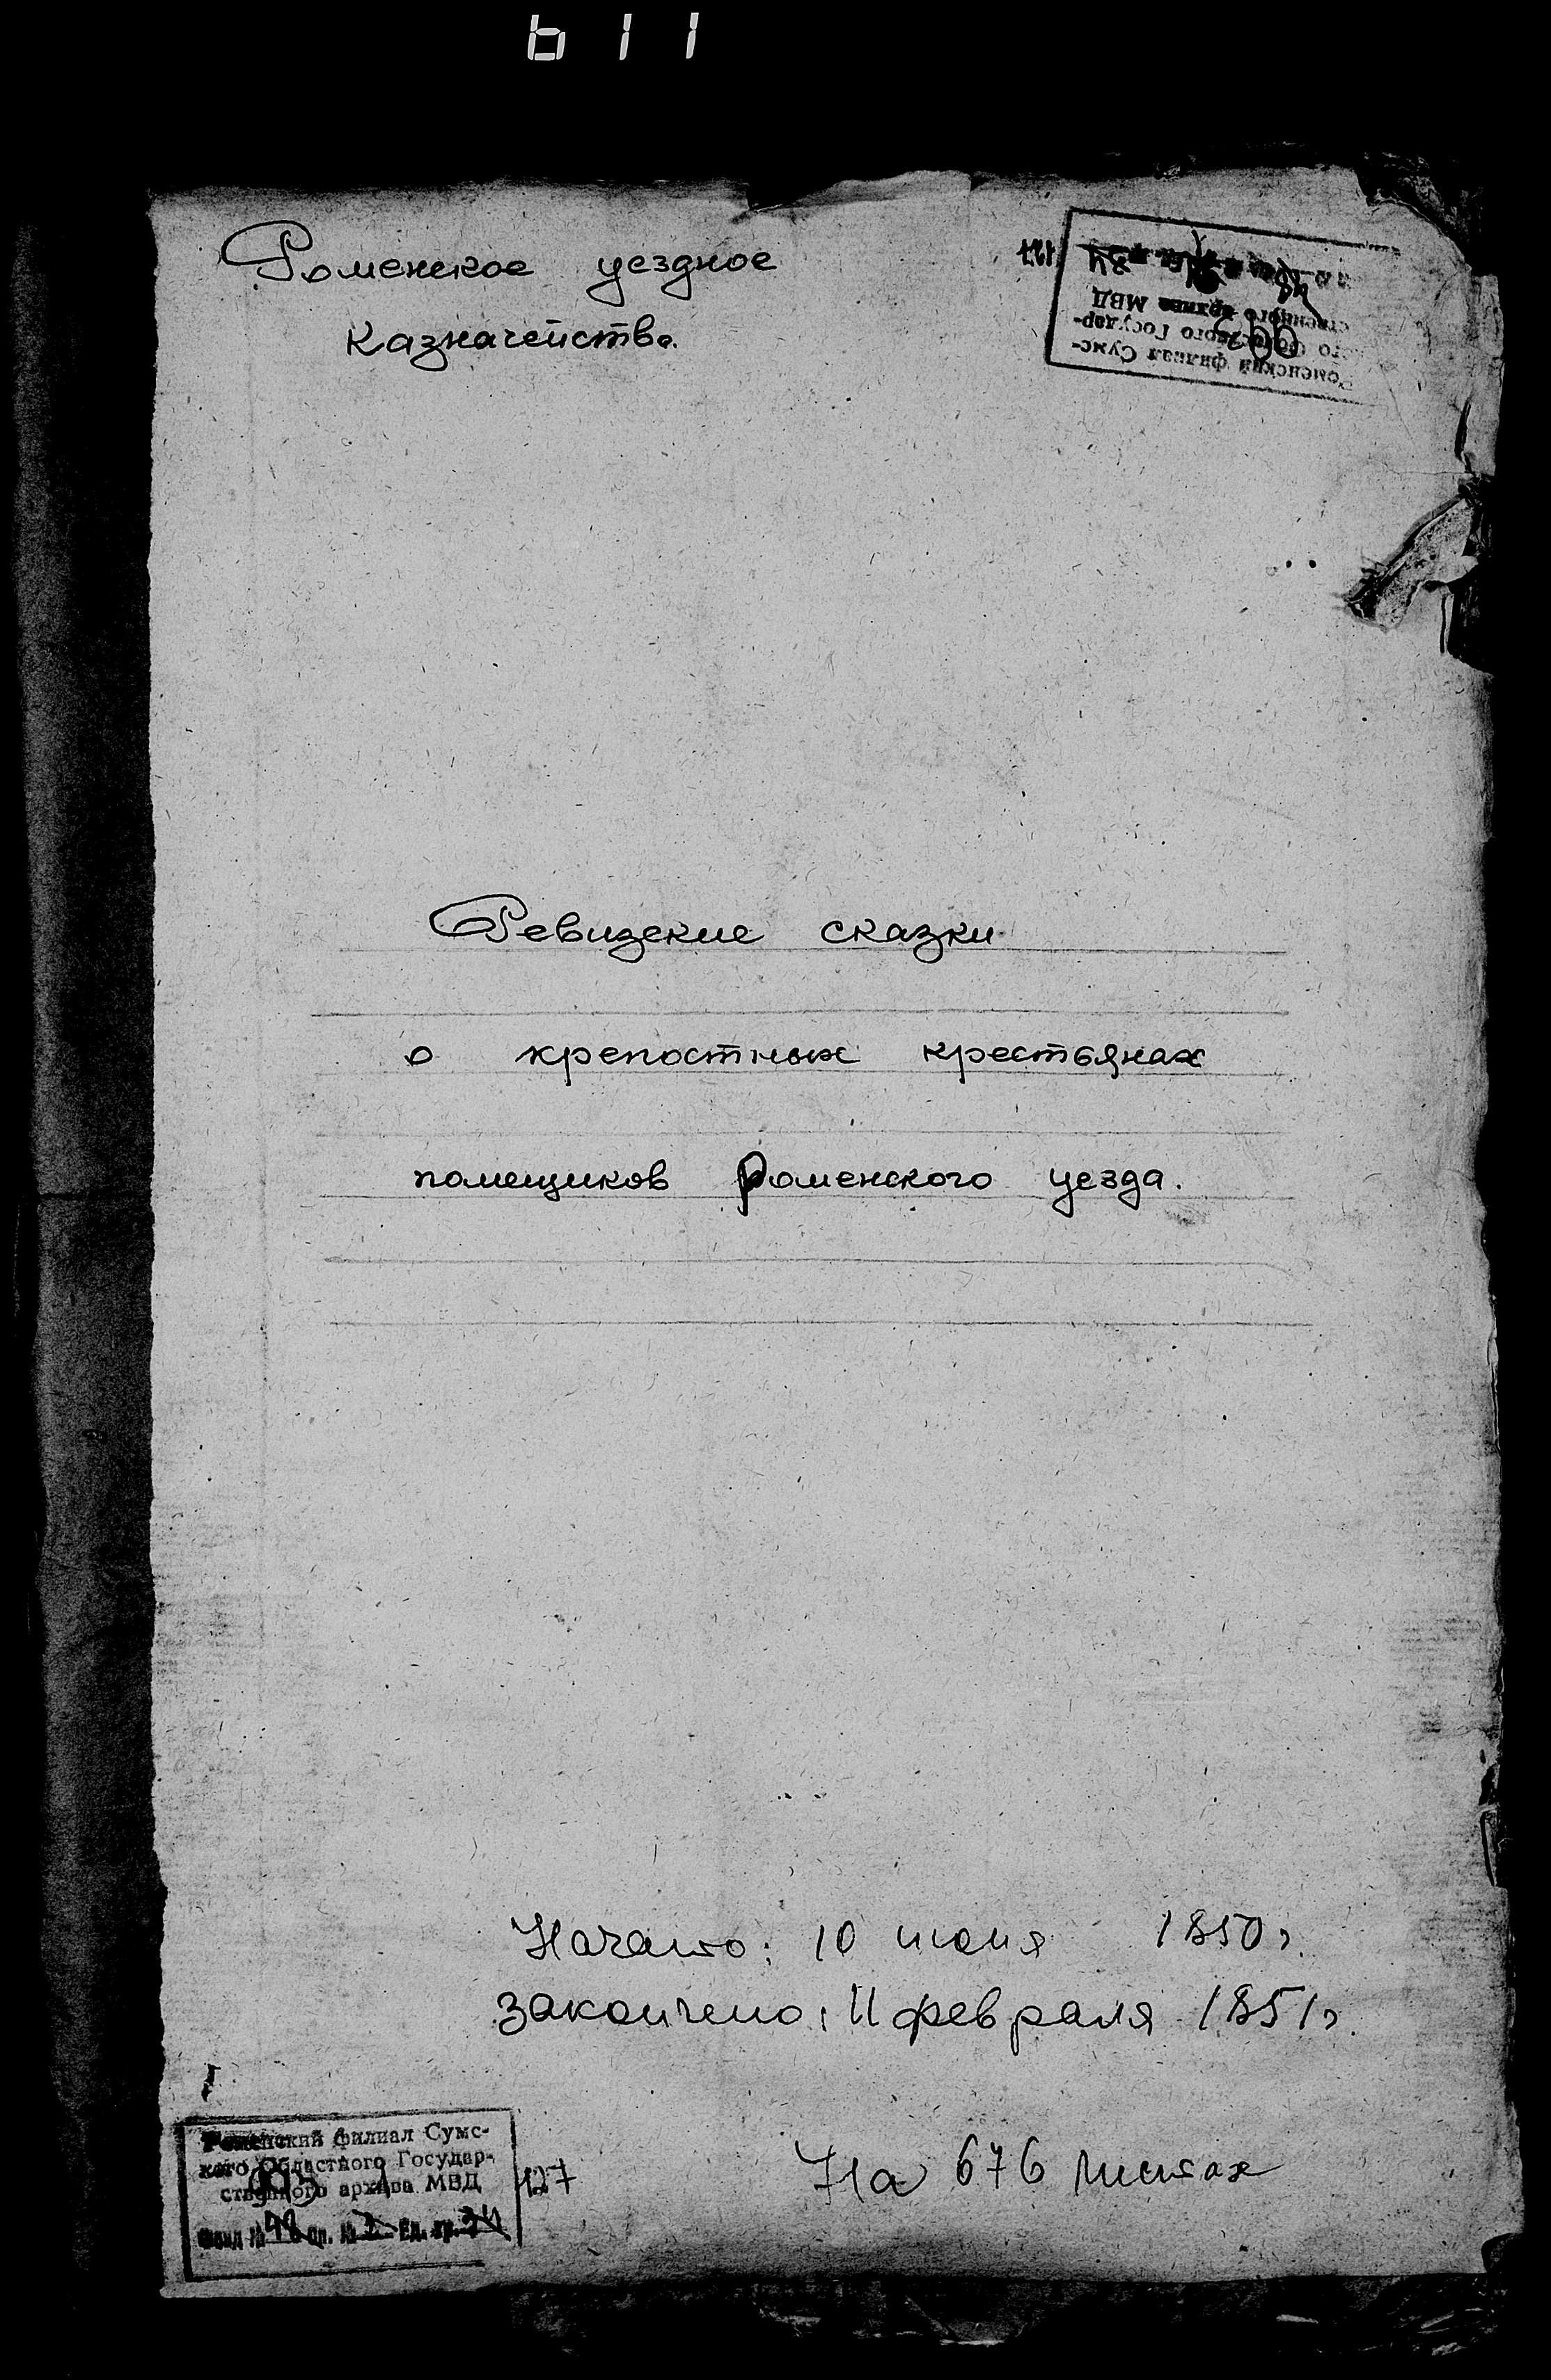 611
Роменское уездное
казначейство.
Роменский филиал Сумс-
кого Областного Государ-
ственного архива МВД
Ревизские сказки
о крепостных крестьянах
помещиков Роменского уезда.
Начато: 10 июня 1850 г.
закончено: 11 февраля 1851 г.
На 676 листах
Роменский филиал Сумс-
кого Областного Государ-
ственного архива МВД
Фонд № оп. № Ед. хр.
427